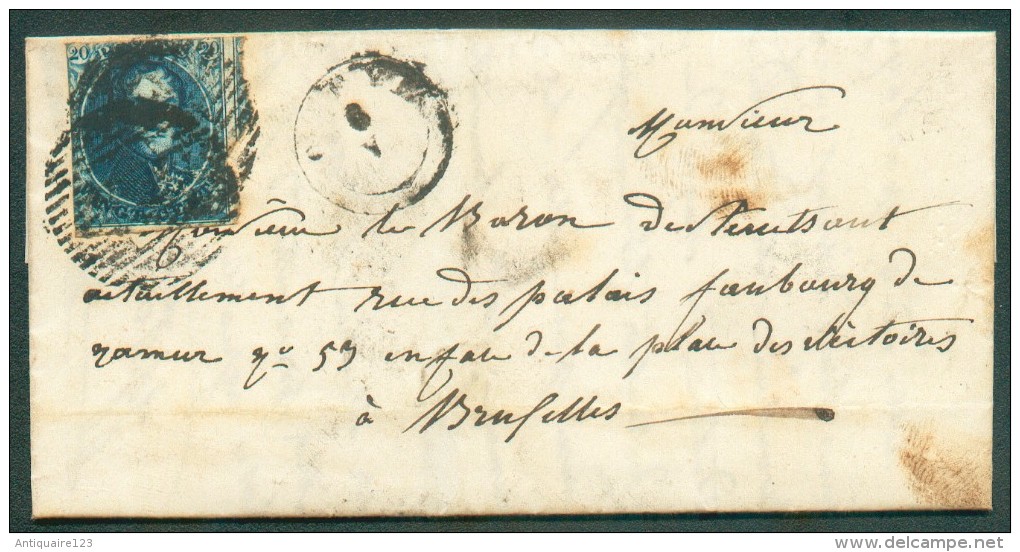 20 20
Monsieur
Monsieur le Baron de
actuellement rue des palais faubourg de
namur no 53 en face de la place des victoires
à Bruxelles
Antiquaire123
www.delcampe.net